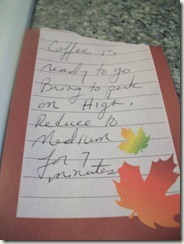 Coffee is
ready to go
Bring to perk
on High.
Reduce to
Medium
for 7
minutes